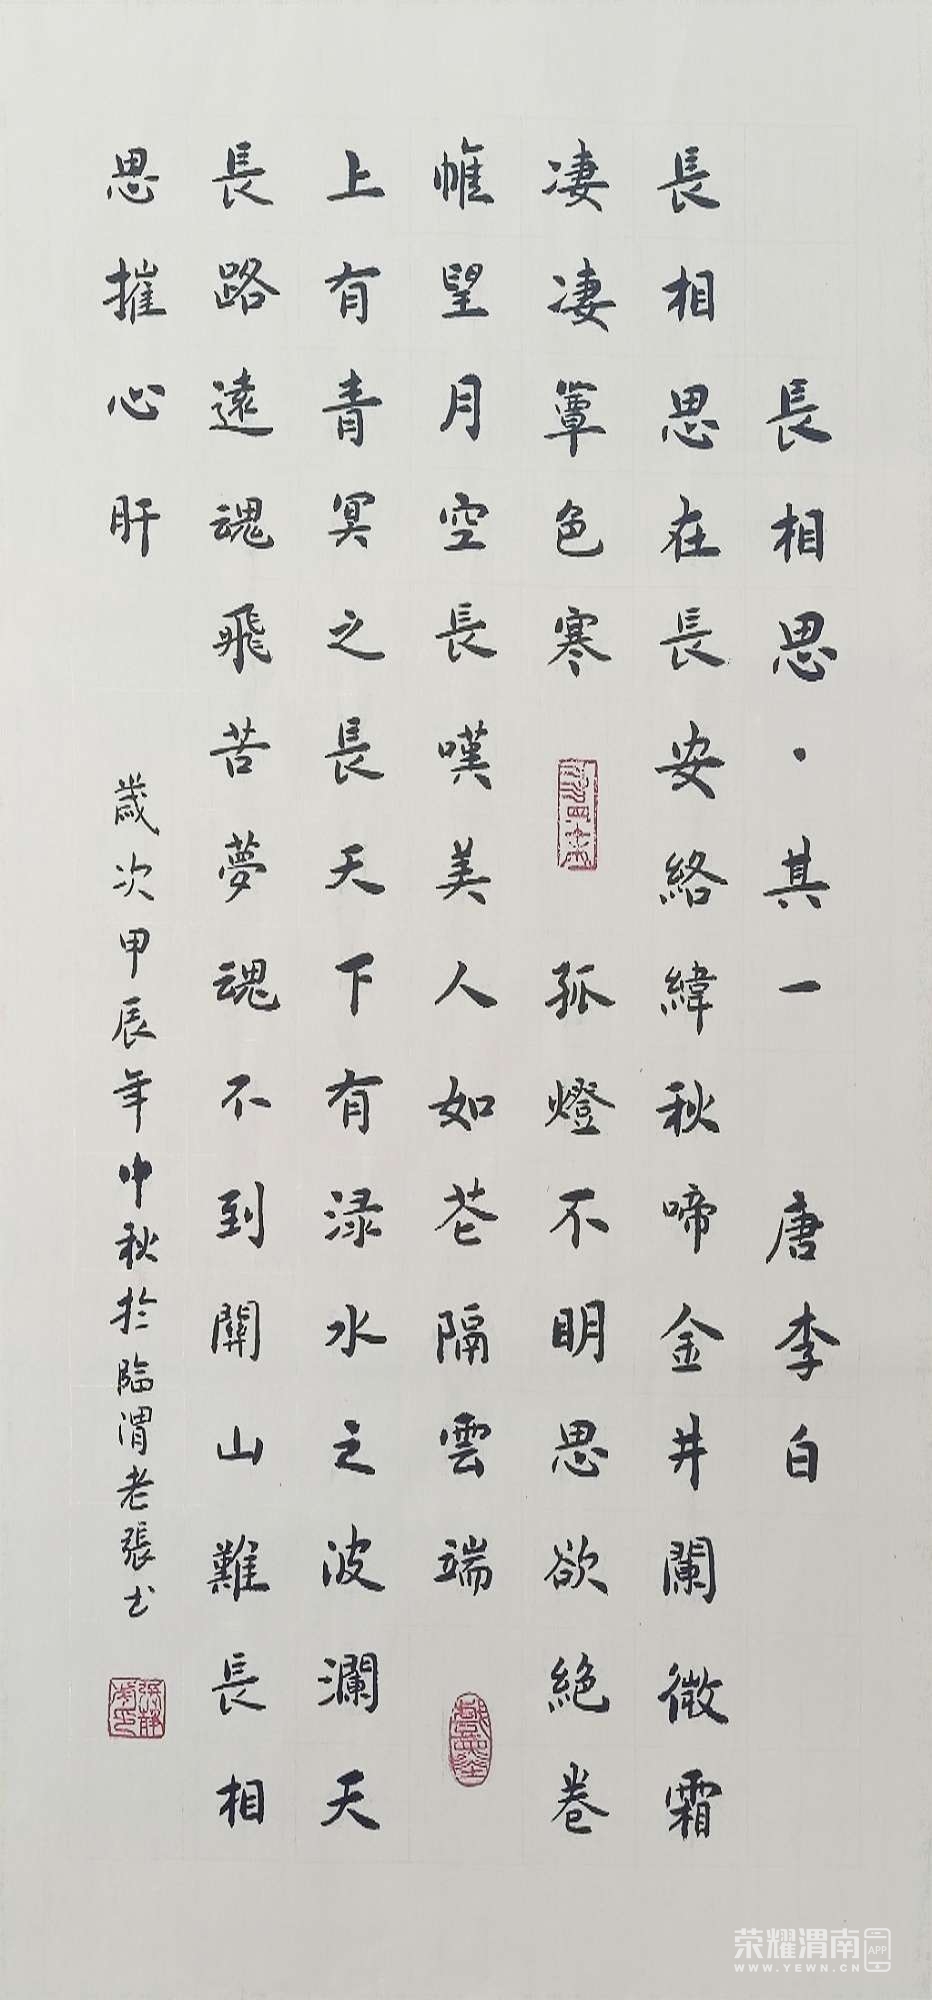 長相思·其一 唐李白
長相思在長安絡緯秋啼金井闌微霜
凄凄簟色寒 孤燈不明思欲絶卷
帷望月空長嘆美人如花隔雲端
上有青冥之長天下有渌水之波瀾天
長路遠魂飛苦夢魂不到關山難長相
思摧心肝
歲次甲辰年中秋於臨渭老張书
荣耀渭南 APP
WWW.YEWN.CN